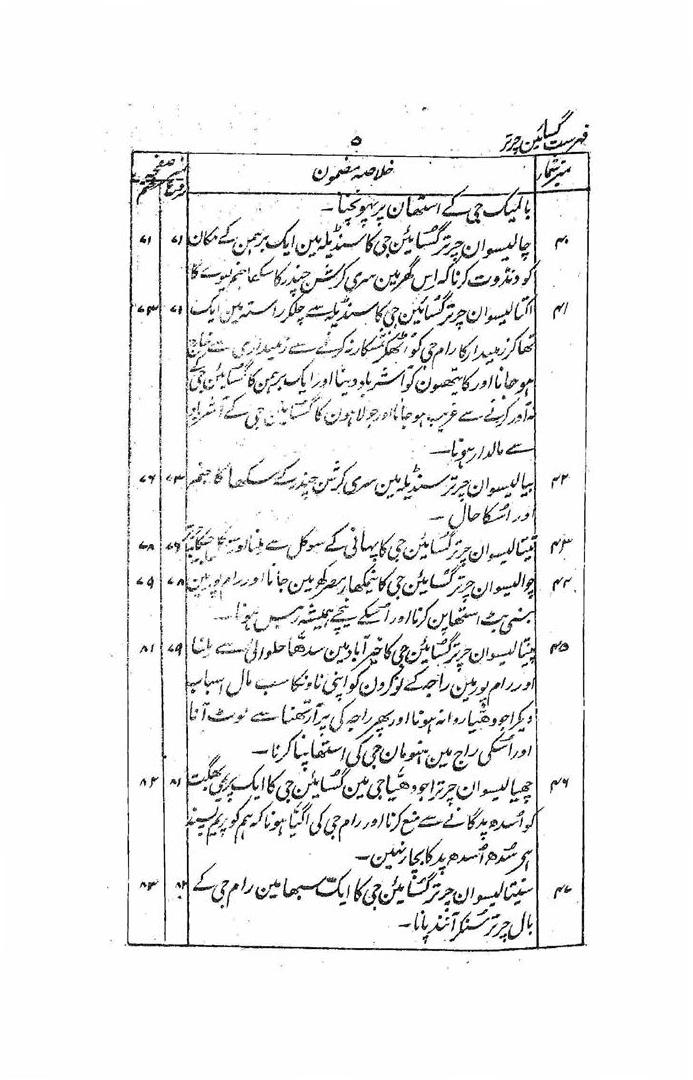 فہرست گسائین چرتر
۵
نمبر شمار خلاصہ مضمون صفحہ
بالمیک جی کے استھان پر پہونچنا۔
۴۰ چالیسوان چرتر گسائین جی کا سنڈیلہ مین ایک برہمن کے مکان ۷۱ ۷۱
کو دنڈوت کرنا کہ اس گھر مین سری کرشن چندر کا سکھا جنم لیوے گا
۴۱ اکتالیسوان چرتر گسائین جی کا سنڈیلہ سے چلکر راستہ مین ایک ۷۱ ۷۳
ٹھاکر زمیندار کا رام جی کو اٹھکر نمسکار نہ کرنے سے زمینداری سے خارج
ہو جانا اور کایتھون کو اشرباد دینا اور ایک برہمن کا گسائین جی کے
نہ آدر کرنے سے غریب ہو جانا اور جولاہون کا گسائین جی کے اشرباد
سے مالدار ہونا۔
۴۲ بیالیسوان چرتر سنڈیلہ مین سری کرشن چندر کے سکھا کا جنم ۷۳ ۷۶
اور اسکا حال۔
۴۳ تیتالیسوان چرتر گسائین جی کا پہانی کے سوکل سے ملنا اور ۷۶ ۷۸
۴۴ چوالیسوان چرتر گسائین جی کا نیکھار مصرکھ مین جانا اور رام پور مین ۷۸ ۷۹
بنسی بٹ استھاپن کرنا اور اسکے نیچے ہمیشہ رہس ہونا۔
۴۵ پیتالیسوان چرتر گسائین جی کا خیرآباد مین سدھا حلوائی سے ملنا ۷۹ ۸۱
اور رام پور مین راجہ کے نوکرون کو اپنی ناؤ کا سب مال اسباب
دیکر اجودھیا روانہ ہونا اور پھر راجہ کی پرارتھنا سے لوٹ آنا
اور اسکی راج مین ہنومان جی کی استھاپنا کرنا۔
۴۶ چھیالیسوان چرتر اجودھیا جی مین گسائین جی کا ایک پریمی بھگت ۸۱ ۸۲
کو اسدھ پد گانے سے منع کرنا اور رام جی کی اگیا ہونا کہ ہم کو پریم پسند
ہے سدھ اسدھ پد کا بچار نہین۔
۴۷ سنیتالیسوان چرتر گسائین جی کا ایک سبھا مین رام جی کے ۸۲ ۸۳
بال چرتر سنکر آنند پانا۔